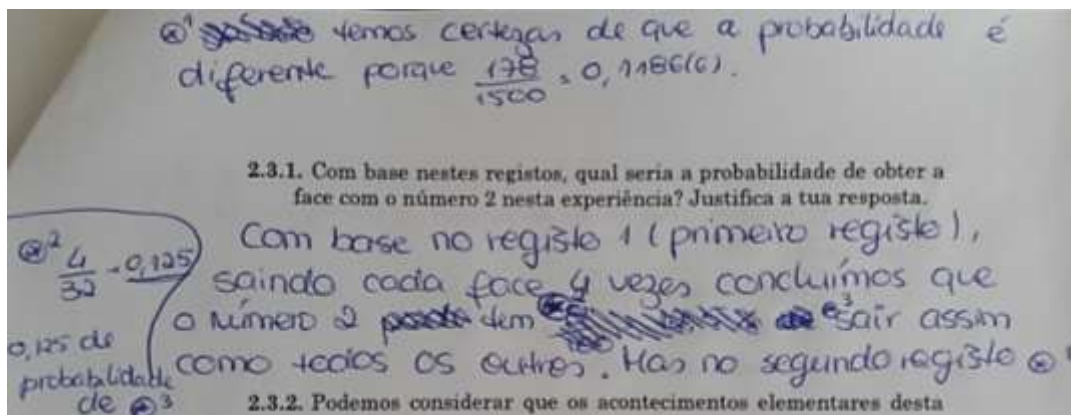 ⊛¹ temos certezas de que a probabilidade é
diferente porque 178/1500 = 0,1186(6).
2.3.1. Com base nestes registos, qual seria a probabilidade de obter a
face com o número 2 nesta experiência? Justifica a tua resposta.
Com base no registo 1 (primeiro registo),
saindo cada face 4 vezes concluímos que
o número 2 tem ⊛² ⊛³ sair assim
como todos os outros. Mas no segundo registo ⊛¹
⊛² 4/32 = 0,125
0,125 de
probabilidade
de ⊛³
2.3.2. Podemos considerar que os acontecimentos elementares desta